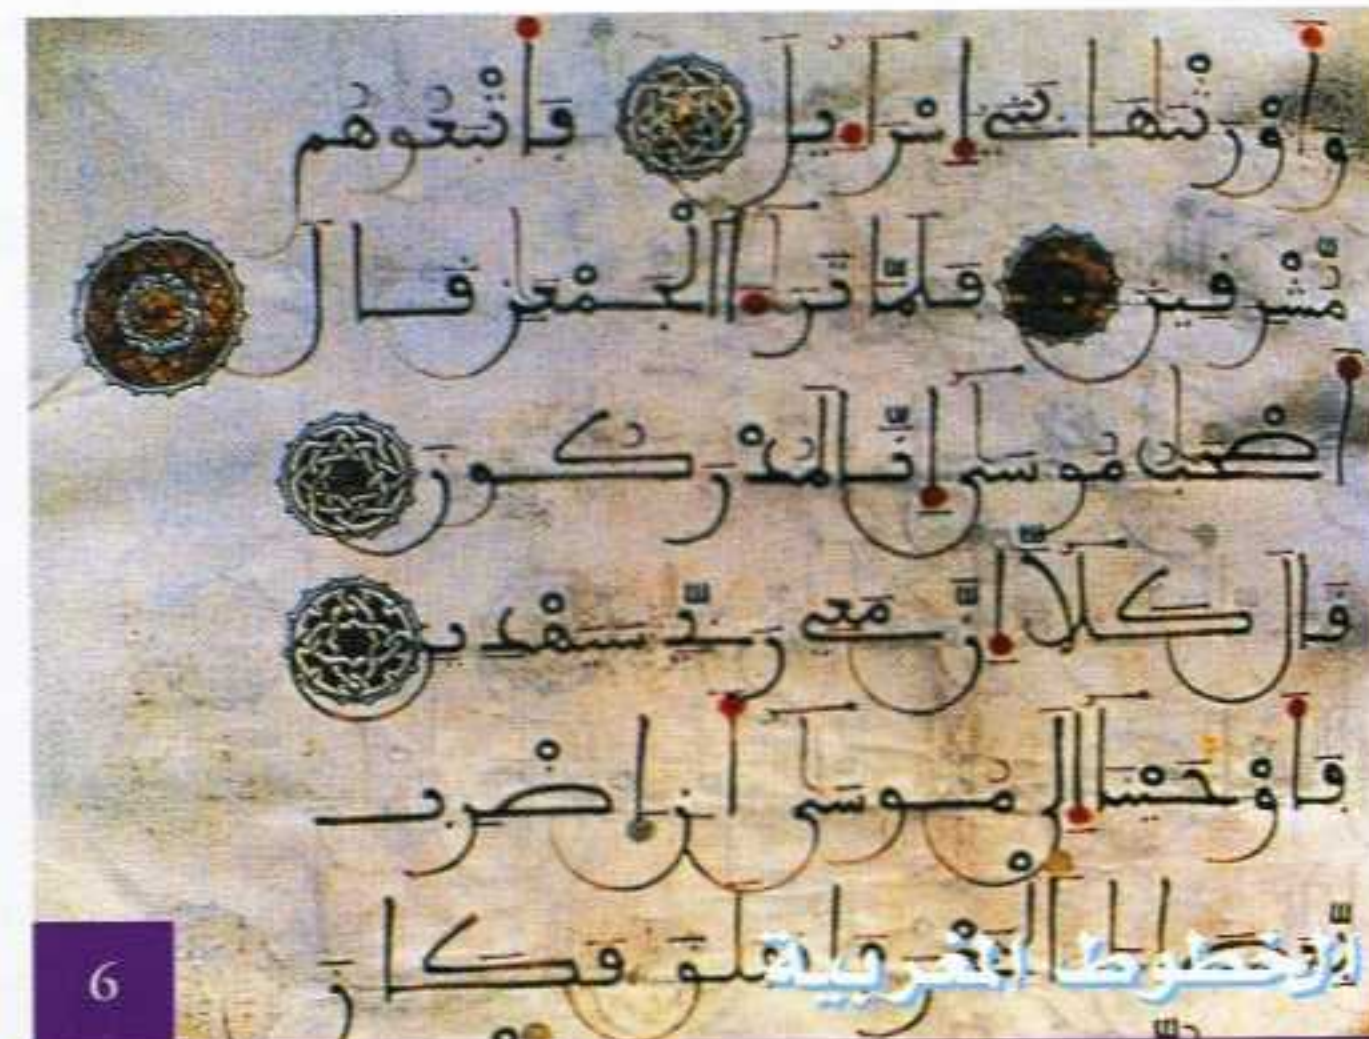 وَأَوْرَثْنَٰهَا بَنِي إِسْرَٰءِيلَ فَأَتْبَعُوهُم
مُّشْرِقِينَ فَلَمَّا تَرَٰءَا الْجَمْعَٰنِ قَالَ
أَصْحَٰبُ مُوسَىٰ إِنَّا لَمُدْرَكُونَ
قَالَ كَلَّا إِنَّ مَعِي رَبِّي سَيَهْدِينِ
فَأَوْحَيْنَا إِلَىٰ مُوسَىٰ أَنِ اضْرِب
فَانفَلَقَ فَكَانَ
الخطوط المغربية
6